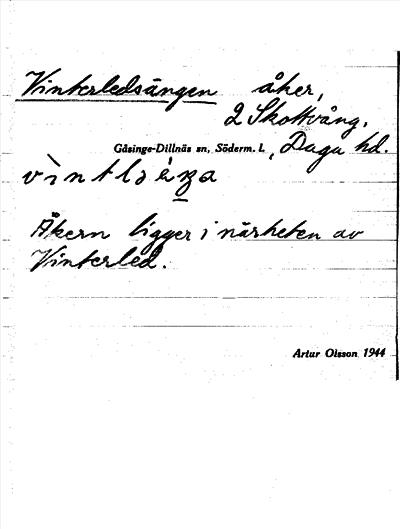 Vinterledsängen åker,
2 Skottvång.
Gåsinge-Dillnäs sn, Söderm. l., Daga hd.
Åkern ligger i närheten av
Vinterled.
Artur Olsson 1944